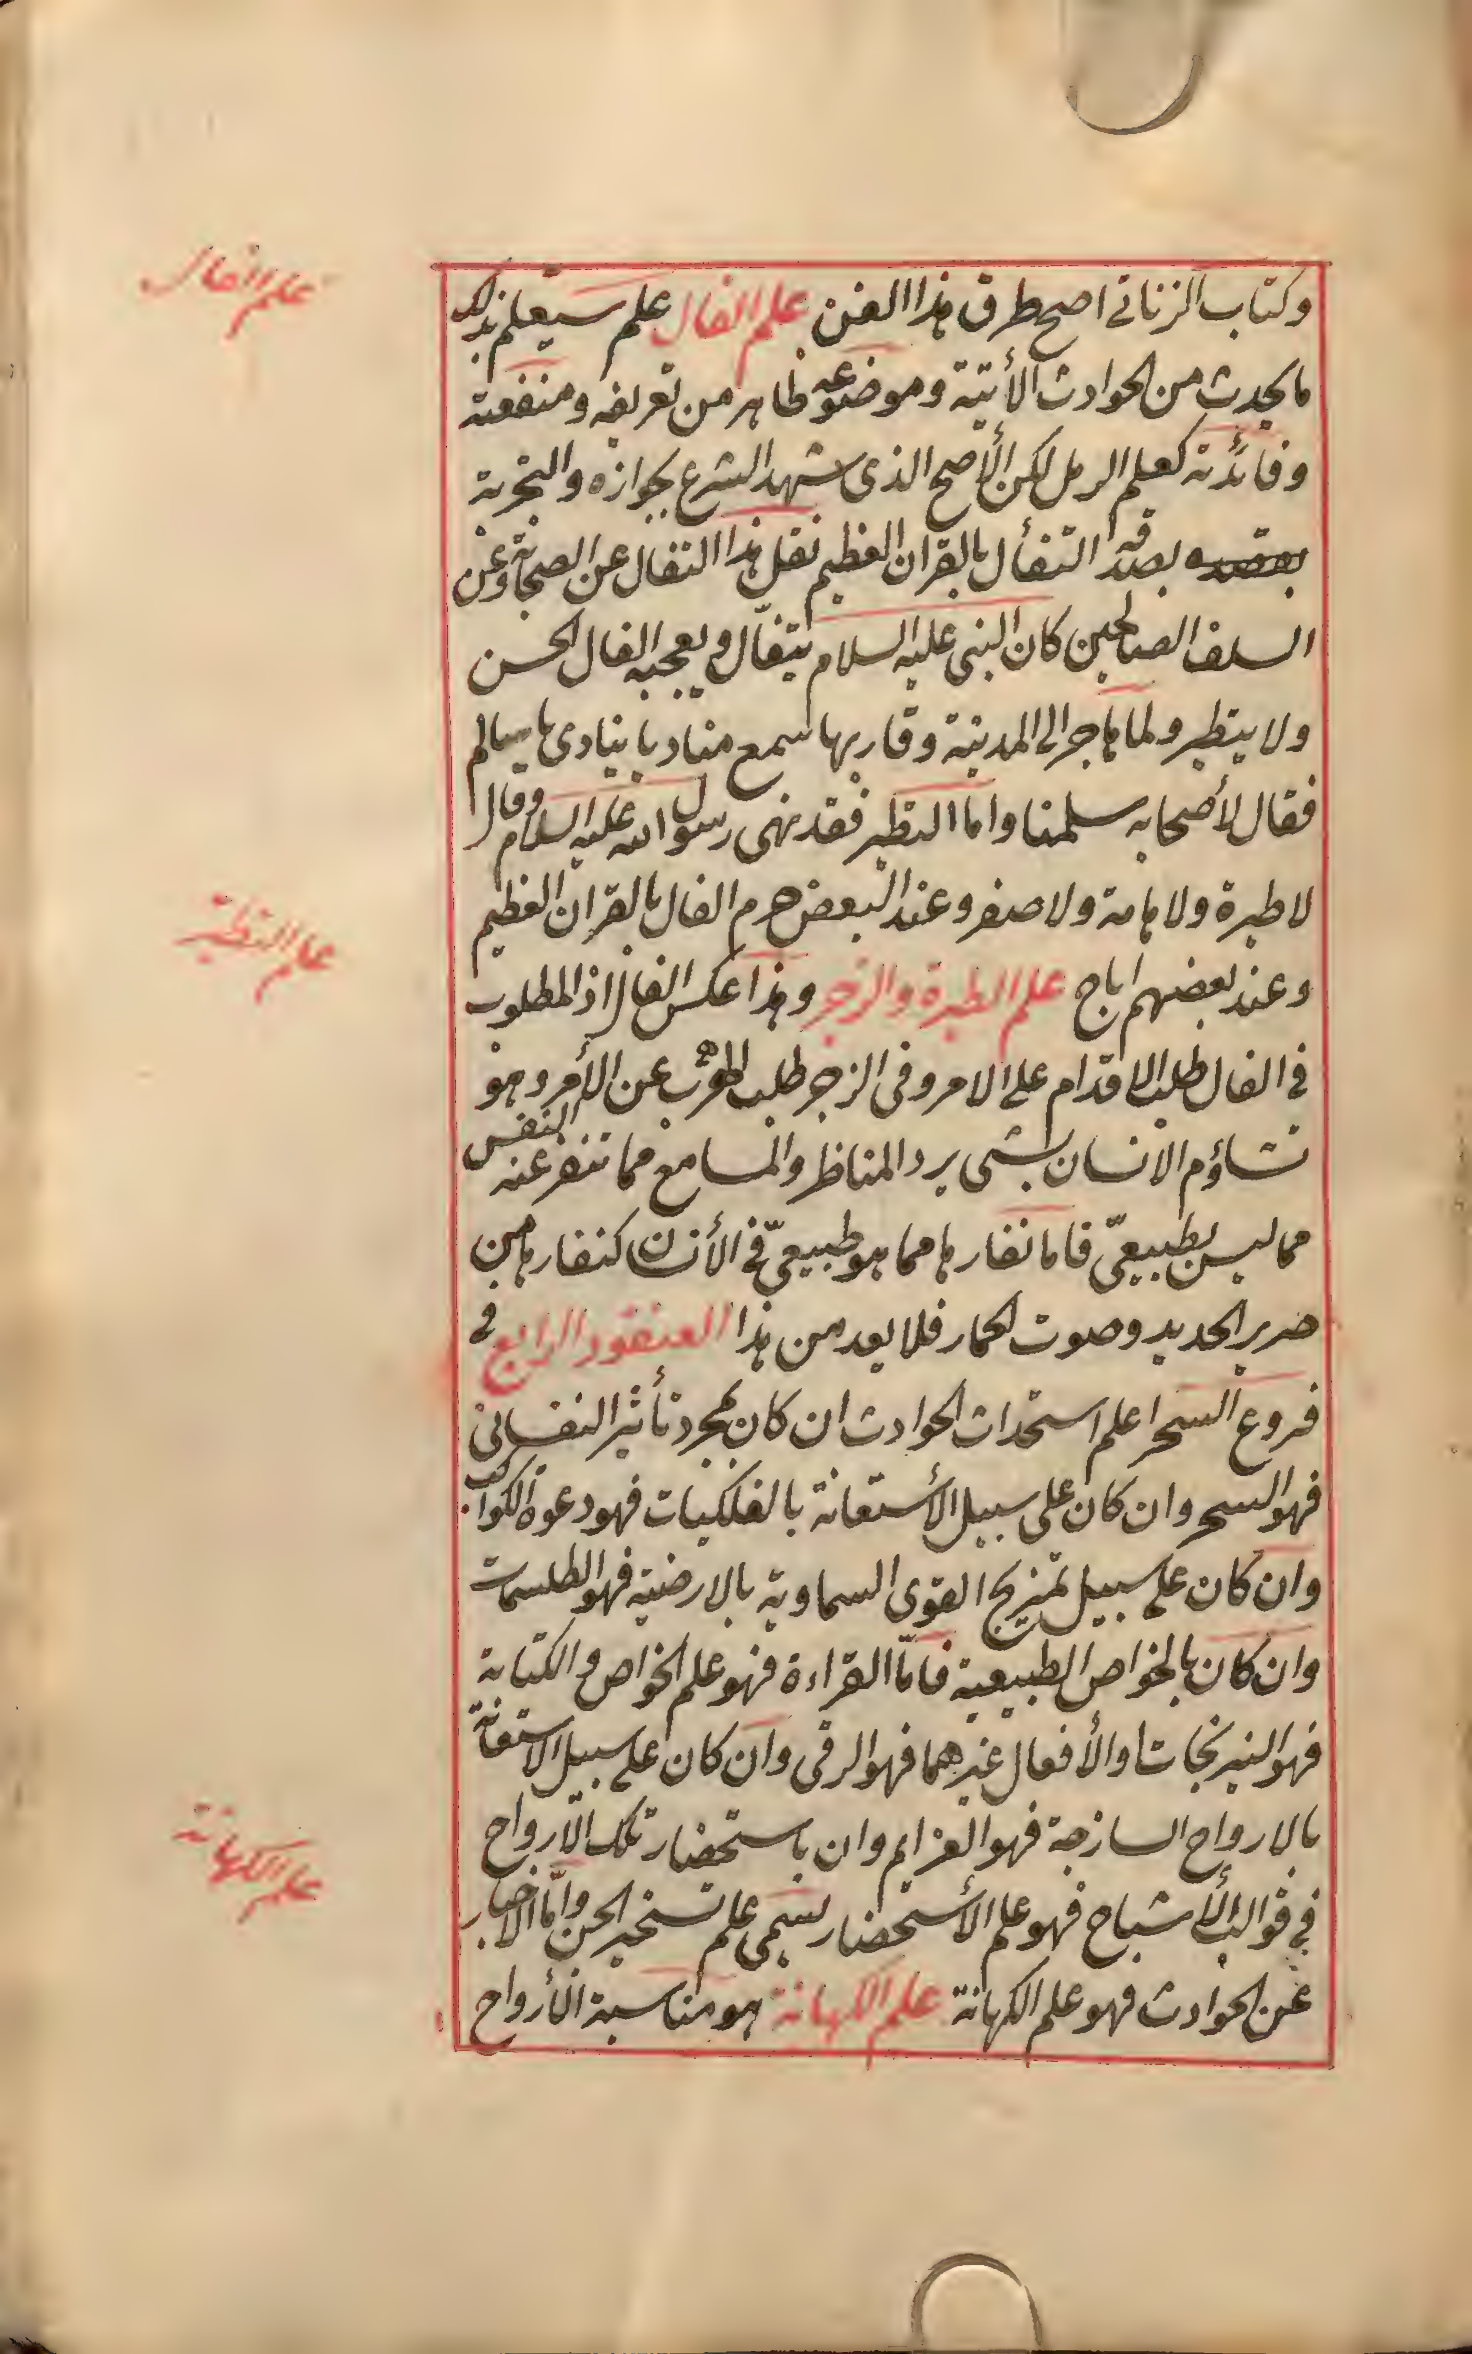 علم الفال
وكتاب الزناتى اصح طرق هذا الفن علم الفال علم سيعلم بذلك
ما يحدث من الحوادث الأتية وموضوعه ظاهر من تعريفه ومنفعته
وفائدته كعلم الرمل لكن الأصح الذى شهد الشرع بجوازه والتجربة
بصدقه التفأل بالقران العظيم نقل هذا التفال عن الصحابة وعن
السلف الصالحين كان النبى عليه السلام يتفأل ويعجبه الفال الحسن
ولا يتطير ولما هاجر الى المدينة وقاربها سمع مناديا ينادى يا سالم
فقال لأصحابه سلمنا واما التطير فقد نهى رسول الله عليه السلام وقال
لا طيرة ولا هامة ولا صفر وعند البعض حرم الفال بالقران العظيم
علم التطير
وعند بعضهم اباح علم الطيرة والزجر وهذا عكس الفال اذ المطلوب
فى الفال طلب الاقدام على الامر وفى الزجر طلب الهرب عن الأمر وهو
تشاؤم الانسان بشى يرد المناظر والمسامع مما تنفر عنه النفس
مما ليس بطبيعىّ فاما نفارها مما هو طبيعىّ فى الأنسان كنفارها من
صرير الحديد وصوت الحمار فلا يعد من هذا العنقود الرابع فى
فروع السحر اعلم استحداث الحوادث ان كان بمجرد تأثير النفسانى
فهو السحر وان كان على سبيل الأستعانة بالفلكيات فهو دعوة الكواكب
وان كان على سبيل تمزيج القوى السماوية بالارضية فهو الطلسمات
وان كان بالخواص الطبيعية فامّا القراءة فهو علم الخواص والكتابة
فهو النيرنجات والأفعال غيرهما فهو الرقى وان كان على سبيل الاستعانة
بالارواح الساذجة فهو العزايم وان باستحضار تلك الأرواح
علم الكهانة
فى قوالب الأشباح فهو علم الأستحضار يسمى علم تسخير الجن وامّا الاخبار
عن الحوادث فهو علم الكهانة علم الكهانة هو مناسبة الأرواح